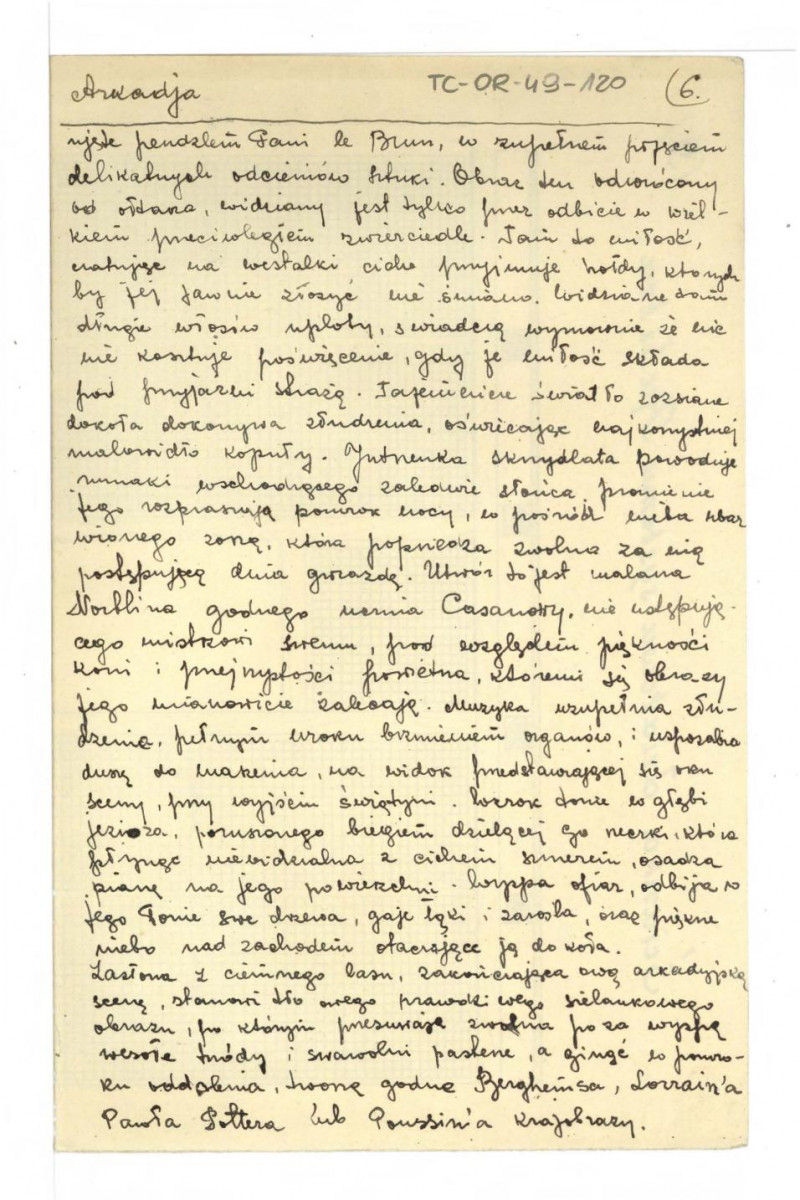 Arkadja TC-OR-49-120 (6.
ujęte pendzlem Pani le Brun, w zupełnem pojęciem
delikatnych odcieniów sztuki. Obraz ten odwrócony
od ołtarza, widziany jest tylko przez odbicie w wiel-
kiem przeciwległem zwierciedle. Tam to miłość,
natrując na westalki cicho przyjmuje hołdy, których
by jej jawnie złożyć nie śmiano. Widziane tam
długie włosów uploty, świadczą wymownie że nic
nie kosztuje poświęcenie, gdy je miłość składa
pod przyjaźni strażą. Tajemnicze światło rozsiane
dokoła dokonywa złudzenia, oświecając najkorzystniej
malowidło kopuły. Jutrzenka skrzydlata powoduje
rumaki wschodzącego zaledwie słońca, promienie
jego rozpraszają pomrok nocy, w pośród nieba zbar
wionego rosą, która poprzedza zwolna za nią
postępującą dnia gwiazdę. Utwór to jest malarza
Norblina godnego ucznia Casanowy, nie ustępują-
cego mistrzowi swemu, pod względem piękności
koni i przejrzystości powietrza, któremi się obrazy
jego mianowicie zalecają. Muzyka uzupełnia złu-
dzenie, pełnym uroku brzmieniem organów, i usposabia
duszę do marzenia, na widok przedstawiającej się oku
sceny, przy wyjściu świątyni. Wzrok tonie w głębi
jeziora, poruszonego biegiem dzielącej go rzeczki, która
płynąc niewidzialna z cichem szmerem, osadza
pianę na jego powierzchni. Wyspa ofiar, odbija w
jego łonie swe drzewa, gaje łąki i zarośla, oraz piękne
niebo nad zachodem otaczające ją do koła.
Zasłona z ciemnego lasu, zakończająca ową arkadyjską
scenę, stanowi tło owego prawdziwego sielankowego
obrazu, po którym przesuwając zwolna poza wyspą
wesołe trzody i swawolni pasterze, a ginąć w pomro-
ku oddalenia, tworzą godne Berghemsa, Lorrain'a
Pawła Pottera lub Poussin'a krajobrazy.